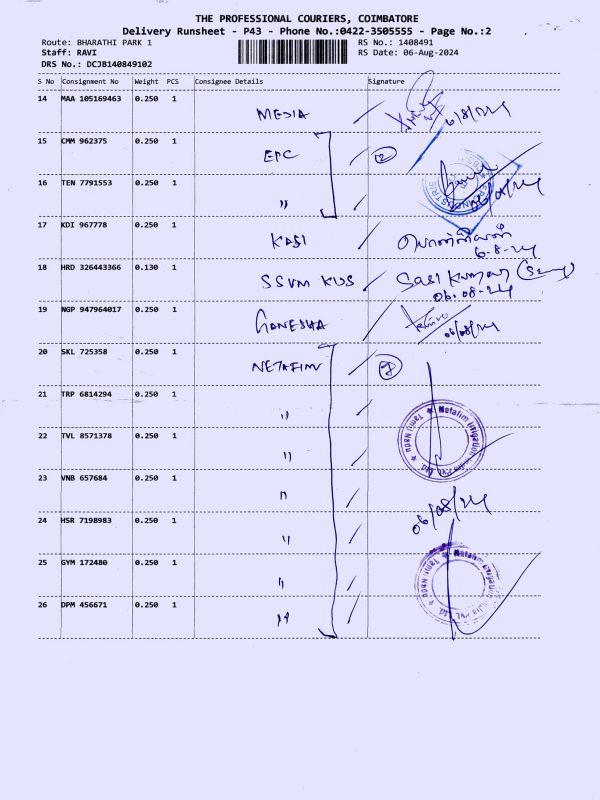 THE PROFESSIONAL COURIERS, COIMBATORE
Delivery Runsheet - P43 - Phone No.:0422-3505555 - Page No.:2
Route: BHARATHI PARK 1 RS No.: 1408491
Staff: RAVI RS Date: 06-Aug-2024
DRS No.: DCJB140849102
S No Consignment No Weight PCS Consignee Details Signature
14 MAA 105169463 0.250 1 MEDIA 6/8/24
15 CMM 962375 0.250 1 EPC
16 TEN 7791553 0.250 1 " 06/08/24
17 KDI 967778 0.250 1 KASI
6-8-24
18 HRD 326443366 0.130 1 SSVM KUS Sasi Kumar
06.08-24
19 NGP 947964017 0.250 1 GANESHA
06/08/24
20 SKL 725358 0.250 1 NETAFIM 7
21 TRP 6814294 0.250 1 "
Netafim Irrigation India Pvt. Ltd. ★ Tamil Nadu ★
22 TVL 8571378 0.250 1 "
23 VNB 657684 0.250 1 "
06/08/24
24 HSR 7198983 0.250 1 "
25 GYM 172480 0.250 1 "
Netafim Irrigation India Pvt. Ltd. ★ Tamil Nadu ★
26 DPM 456671 0.250 1 "